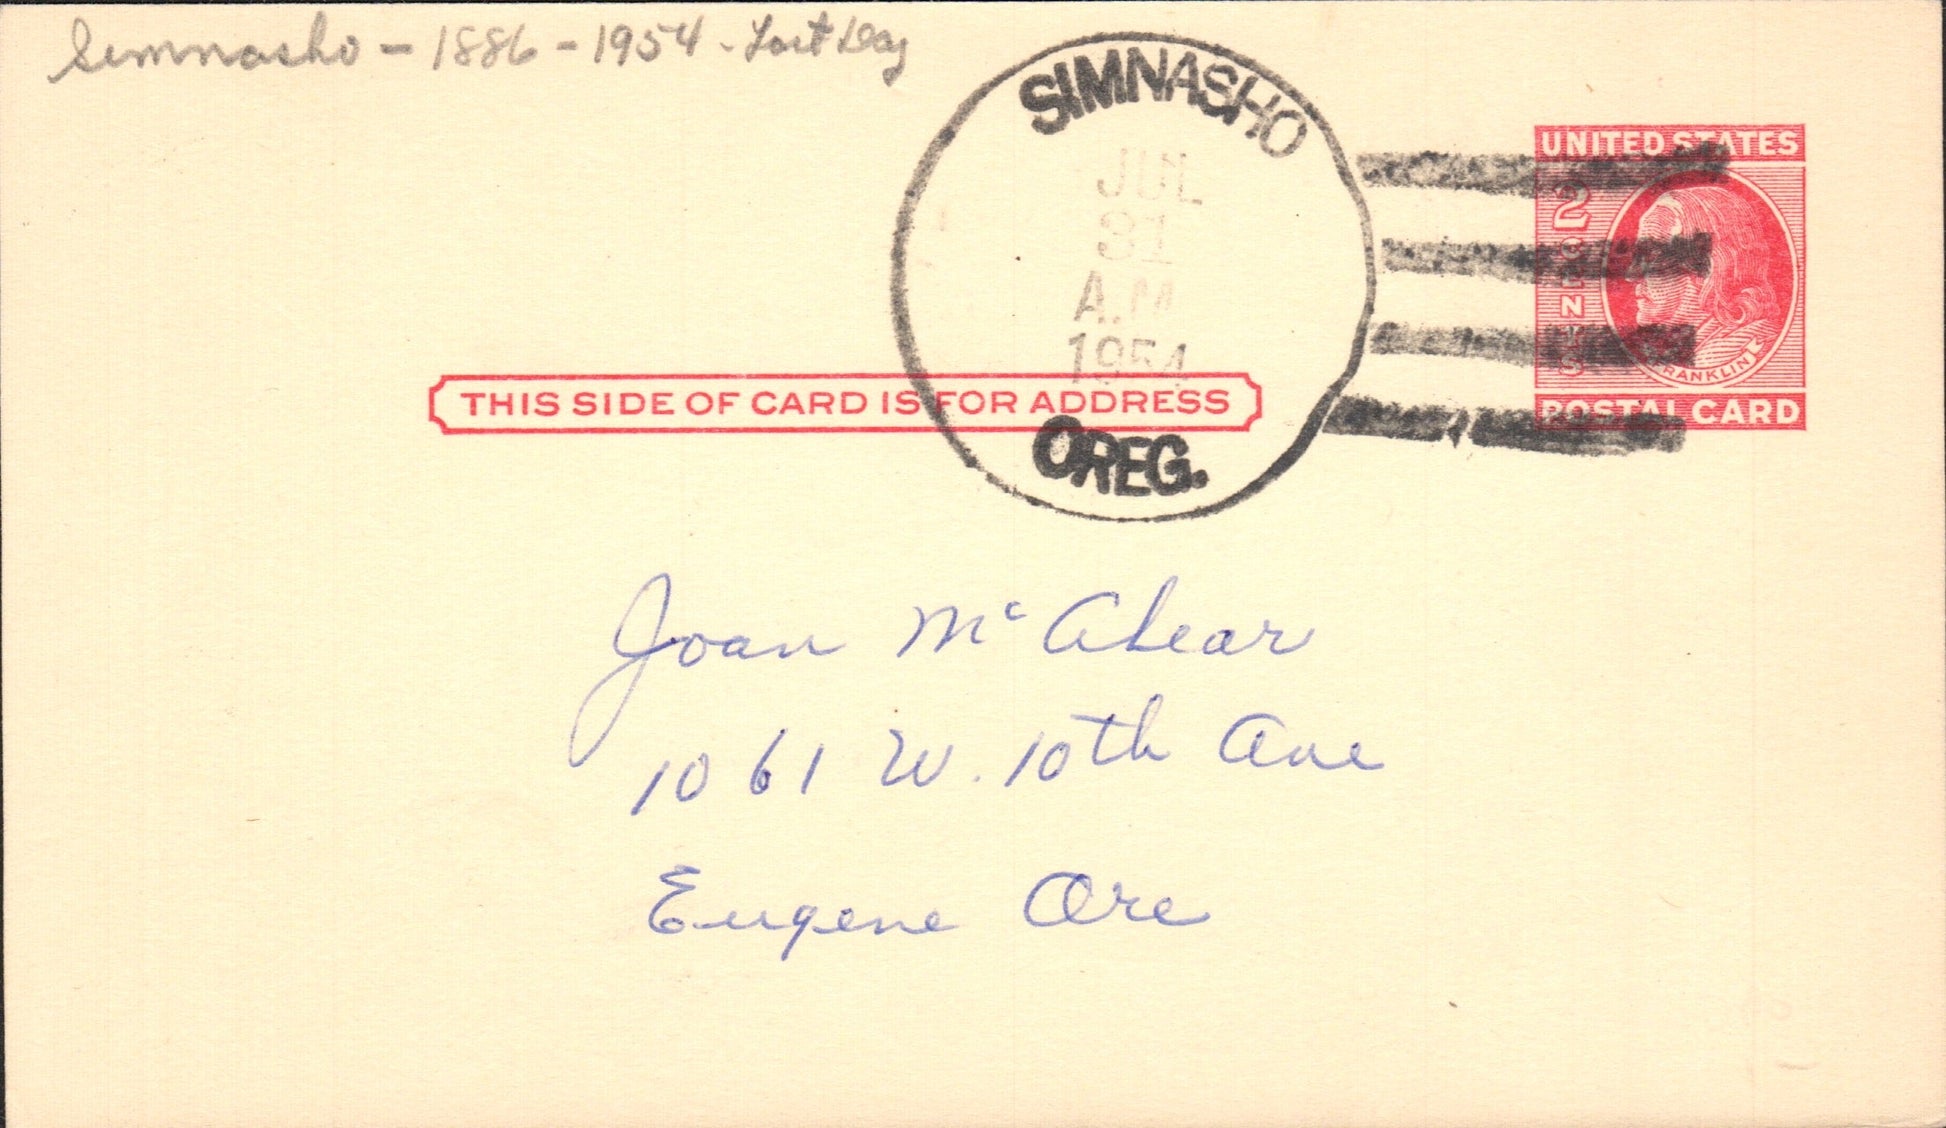 Simnasho - 1886 - 1954 - Last Day
SIMNASHO
JUL
31
A.M
1954
OREG.
UNITED STATES
2
CENTS
FRANKLIN
POSTAL CARD
THIS SIDE OF CARD IS FOR ADDRESS
Joan Mc Alear
1061 W. 10th Ave
Eugene Ore